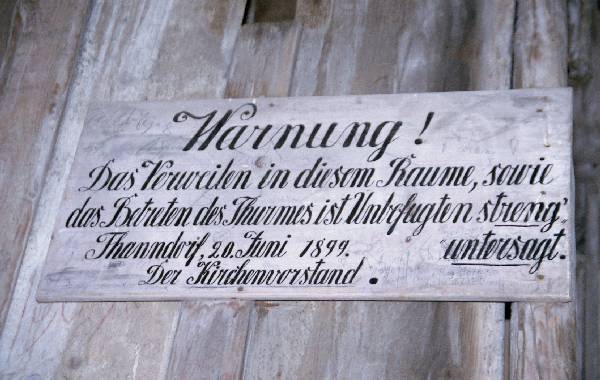 Warnung!
Das Verweilen in diesem Raume, sowie
das Betreten des Thurmes ist Unbefugten streng
untersagt.
Thanndorf, 20. Juni 1899.
Der Kirchenvorstand.